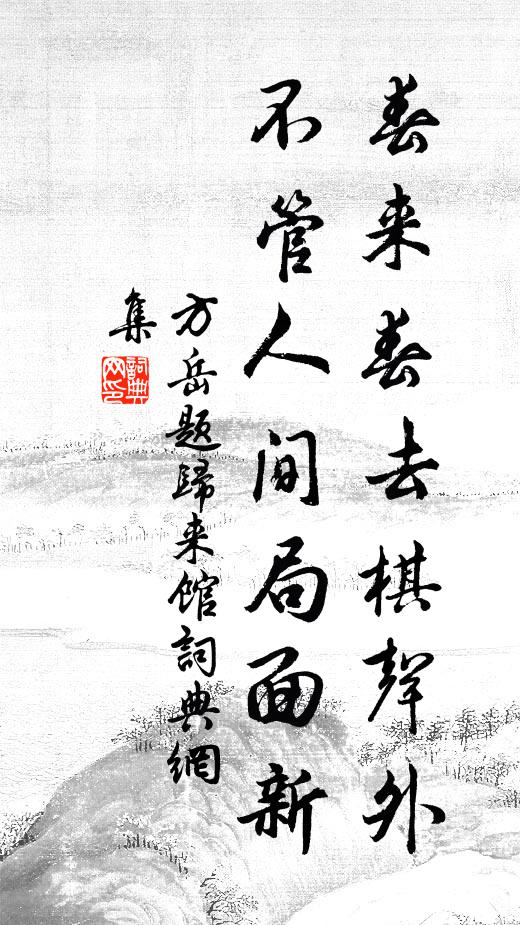 春来春去棋聲外
不管人间局面新
方岳题歸来馆詞典網
集
詞典网印